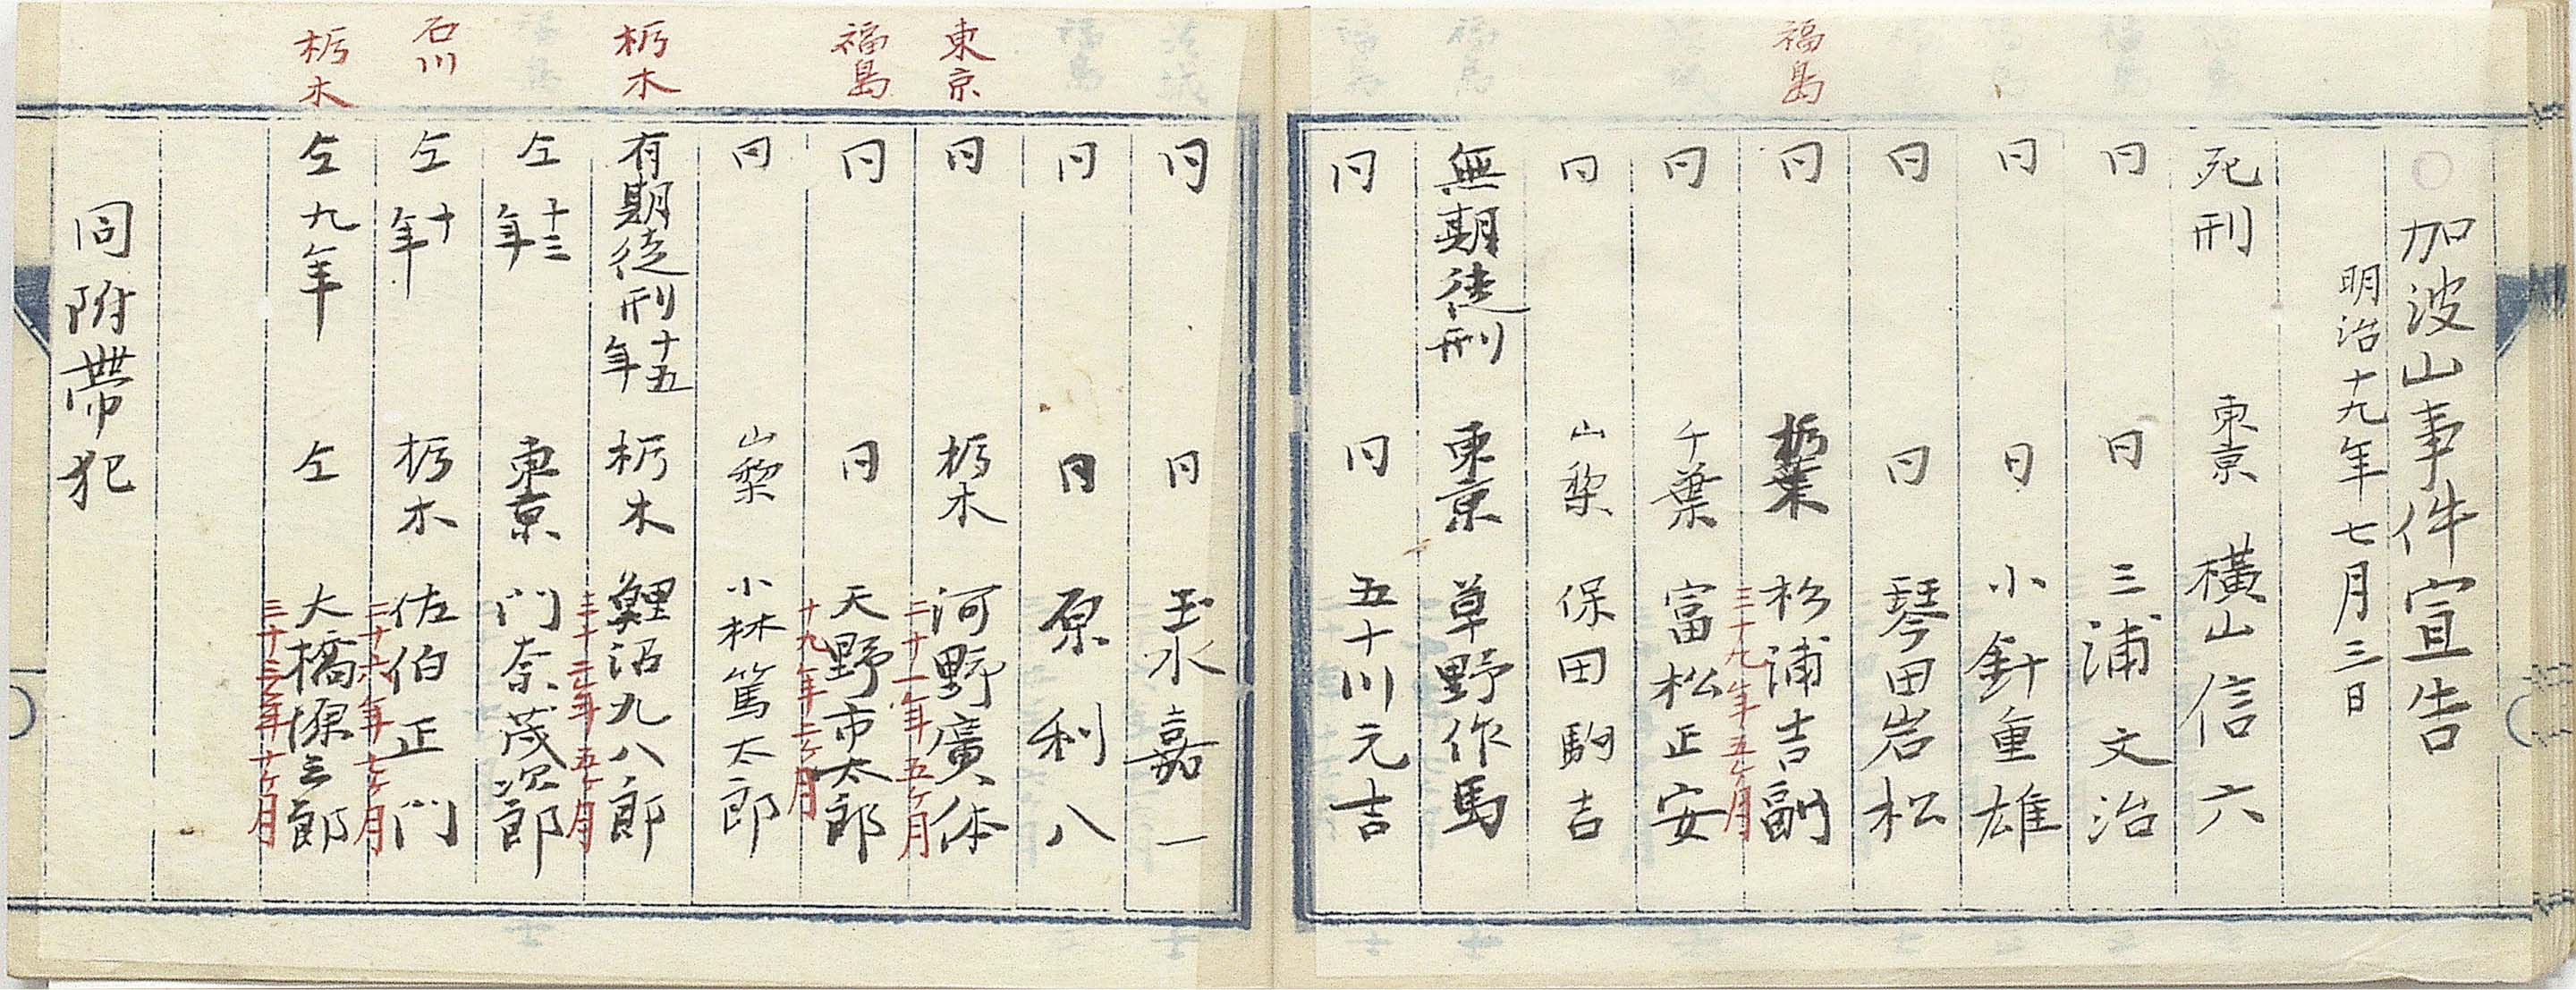 加波山事件宣告
明治十九年七月三日
死刑 東京 横山信六
同 同 三浦文治
同 同 小針重雄
同 同 琴田岩松
福島
同 松浦吉副
三十九年五ヶ月
同 千葉 富松正安
同 山梨 保田駒吉
無期徒刑 東京 草野作馬
同 同 五十川元吉
同 同 玉水嘉一
同 同 原利八
東京
同 栃木 河野廣体
二十一年五ヶ月
福島
同 同 天野市太郎
十九年二ヶ月
同 山梨 小林篤太郎
栃木
有期徒刑十五年 栃木 鯉沼九八郎
五ヶ月
仝十三年 東京 門奈茂次郎
石川
仝十年 栃木 佐伯正門
二十六年七ヶ月
栃木
仝九年 仝 大橋源三郎
同附帶犯